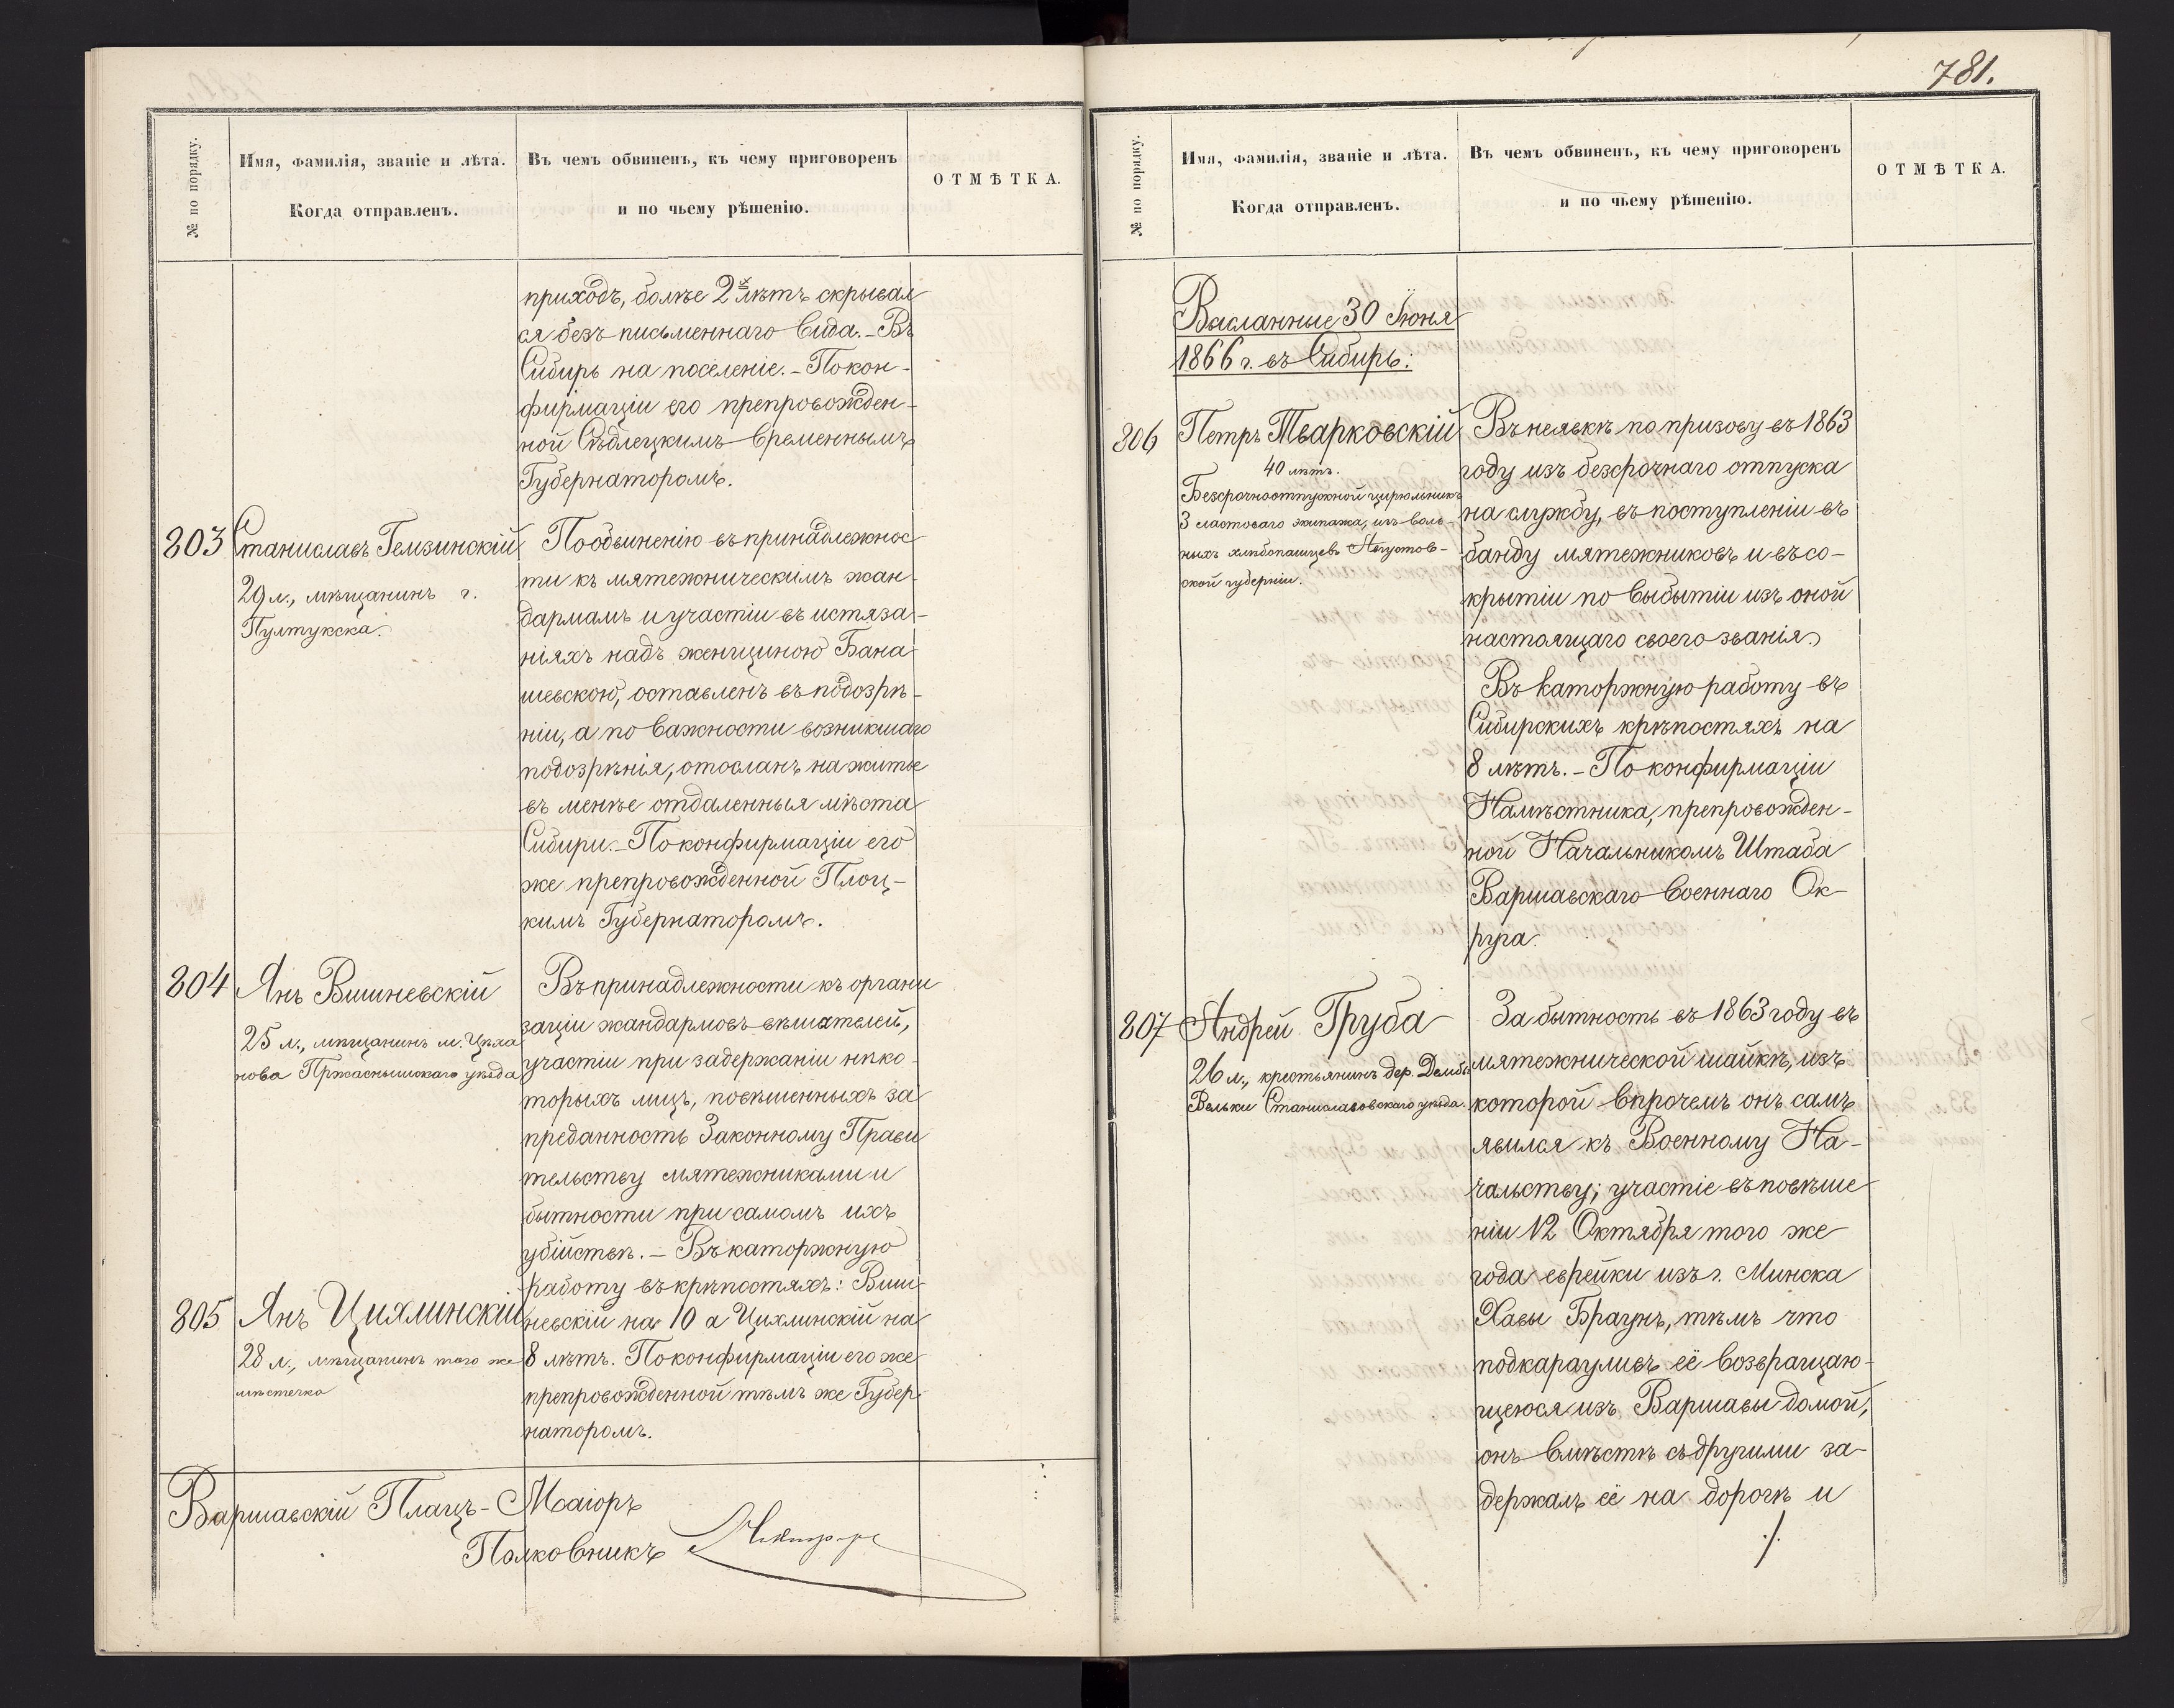 № по порядку.
Имя, фамилія, званіе и лѣта.
Когда отправленъ.
Въ чемъ обвиненъ, къ чему приговоренъ
и по чьему рѣшенію.
ОТМѢТКА.
приходъ, болѣе 2хъ лѣтъ скрывал
ся безъ письменнаго вида. - Въ
Сибирь на поселеніе. - По кон-
фирмаціи его препровожден-
ной Сѣдлецкимъ временнымъ
Губернаторомъ.
803 Станиславъ Гемзинскій
29 л., мѣщанинъ г.
Пултукска.
По обвиненію въ принадлежнос-
ти къ мятежническимъ жан-
дармамъ и участіи въ истяза-
ніяхъ надъ женщиною Бана-
шевскою, оставленъ въ подозрѣ-
ніи, а по важности возникшаго
подозрѣнія, отосланъ на житье
въ менѣе отдаленныя мѣста
Сибири. - По конфирмаціи его
же препровожденной Плоц-
кимъ Губернаторомъ.
804 Янъ Вишневскій
25 л., мѣщанинъ м. Цѣха
нова Пржаснышскаго уѣзда
Въ принадлежности къ органи
заціи жандармовъ вѣшателей,
участіи при задержаніи нѣко-
торыхъ лицъ, повѣшенныхъ за
преданность Законному Прави
тельству мятежниками и
бытности при самомъ ихъ
убійствѣ. - Въ каторжную
работу въ крѣпостяхъ: Виш-
невскій на 10 а Цихлинскій на
8 лѣтъ. По конфирмаціи его же
препровожденной тѣмъ же Губер-
наторомъ.
805 Янъ Цихлинскій
28 л., мѣщанинъ того же
мѣстечка
Варшавскій Плацъ-Маіоръ
Полковникъ
781.
№ по порядку.
Имя, фамилія, званіе и лѣта.
Когда отправленъ.
Въ чемъ обвиненъ, къ чему приговоренъ
и по чьему рѣшенію.
ОТМѢТКА.
Высланные 30 Іюня
1866 г. въ Сибирь:
806 Петръ Тварковскій
40 лѣтъ.
Безсрочноотпускной цирюльникъ
3 ластоваго экипажа, изъ воль-
ныхъ хлѣбопашцевъ Августов-
ской губерніи.
Въ неявкѣ по призову въ 1863
году изъ безсрочнаго отпуска
на службу, въ поступленіи въ
банду мятежниковъ и въ со-
крытіи по выбытіи изъ оной
настоящаго своего званія.
Въ каторжную работу въ
Сибирскихъ крѣпостяхъ на
8 лѣтъ. - По конфирмаціи
Намѣстника, препровожден-
ной Начальникомъ Штаба
Варшавскаго Военнаго Ок-
руга.
807 Андрей Груба
26 л., крестьянинъ дер. Дембы
Вельки Станиславовскаго уѣзда.
За бытность въ 1863 году въ
мятежнической шайкѣ, изъ
которой впрочемъ онъ самъ
явился къ Военному На-
чальству; участіе въ повѣше-
ніи 12 Октября того же
года еврейки изъ г. Минска
Хавы Браунъ, тѣмъ что
подкарауливъ её возвращаю-
щеюся изъ Варшавы домой,
онъ вмѣстѣ съ другими за-
держалъ её на дорогѣ и
./.